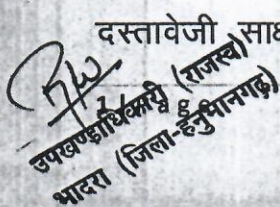 दस्तावेजी साक्ष
उपखण्डाधिकारी (राजस्व)
भादरा (जिला-हनुमानगढ़)